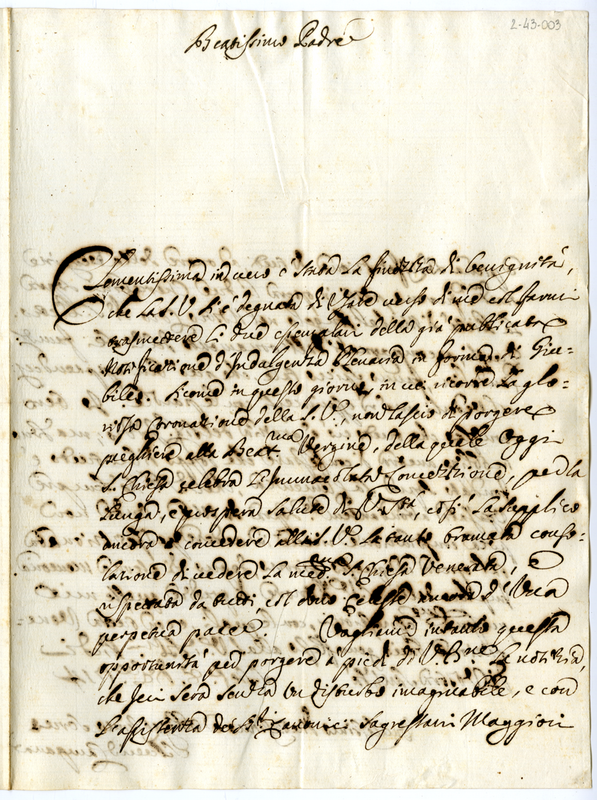 2-43-003
Beatissimo Padre
Clementissima in vero è stata la finezza di benignità,
che la S. V. si è degnata di usare verso di me col farmi
trasmettere li due esemplari della già publicata
Notificazione d'Indulgenza Plenaria in forma di Giu-
bileo. Siccome in questo giorno, in cui ricorre la glo-
riosa Coronazione della S. V., non lascio di porgere
preghiere alla Beat.ma Vergine, della quale oggi
la Chiesa celebra l'Immacolata Concezzione, per la
lunga, e prospera salute di V. Stà, così la supplico
ancora a concedere alla S. V. la tanto bramata conso-
lazione di vedere la med.ema S. Chiesa venerata, e
rispettata da tutti, col dono celeste ancora d'una
perpetua pace. Vagliami intanto questa
opportunità per porgere a' piedi di V. B.ne la notizia,
che jeri sera senza un disturbo imaginabile, e con
l'assistenza de' Canonici Sagrestani Maggiori